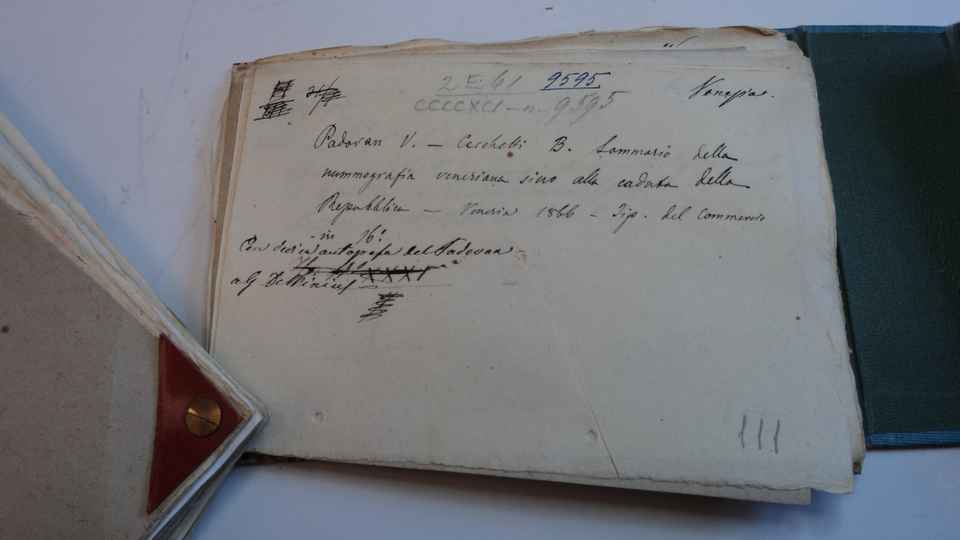 2 E 61 9595
CCCCXCI - n. 9595
Padovan V. - Cecchetti B. Sommario della
nummografia veneziana sino alla caduta della
Repubblica - Venezia 1866 - Tip. del Commercio
- in 16°
Con dedica autografa del Padovan
a G. De
XXXI
111